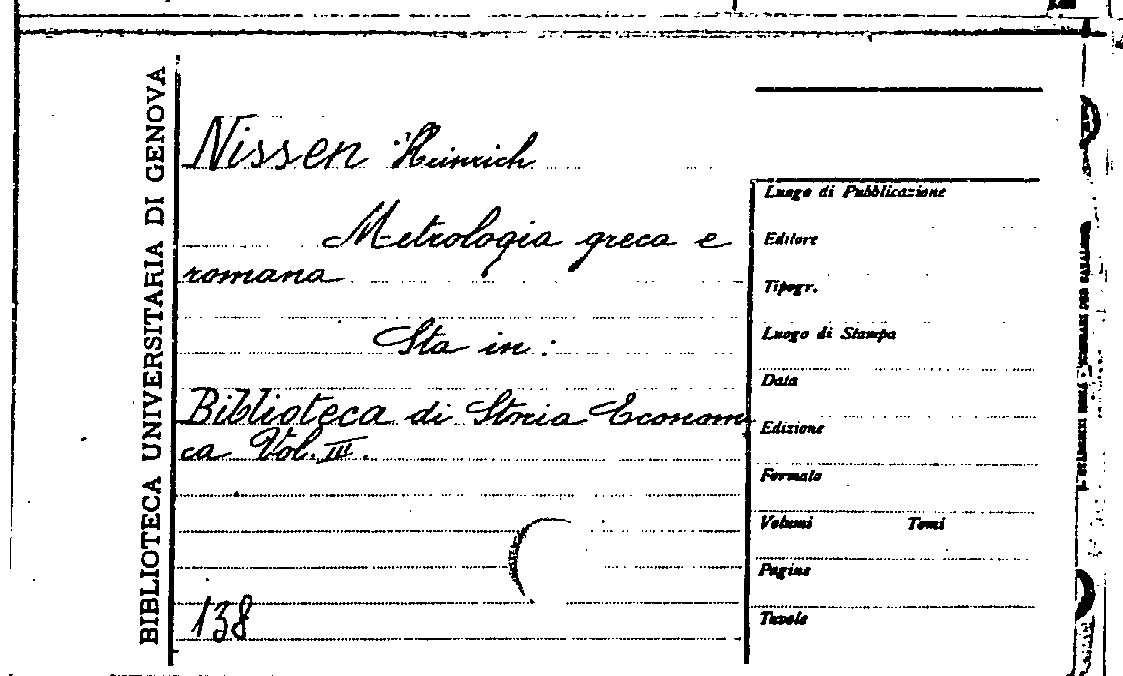 BIBLIOTECA UNIVERSITARIA DI GENOVA
Nissen Heinrich
Metrologia greca e
romana
Sta in:
Biblioteca di Storia Econom
ca Vol. III.
138
Luogo di Pubblicazione
Editore
Tipogr.
Luogo di Stampa
Data
Edizione
Formato
Volumi Tomi
Pagine
Tavole